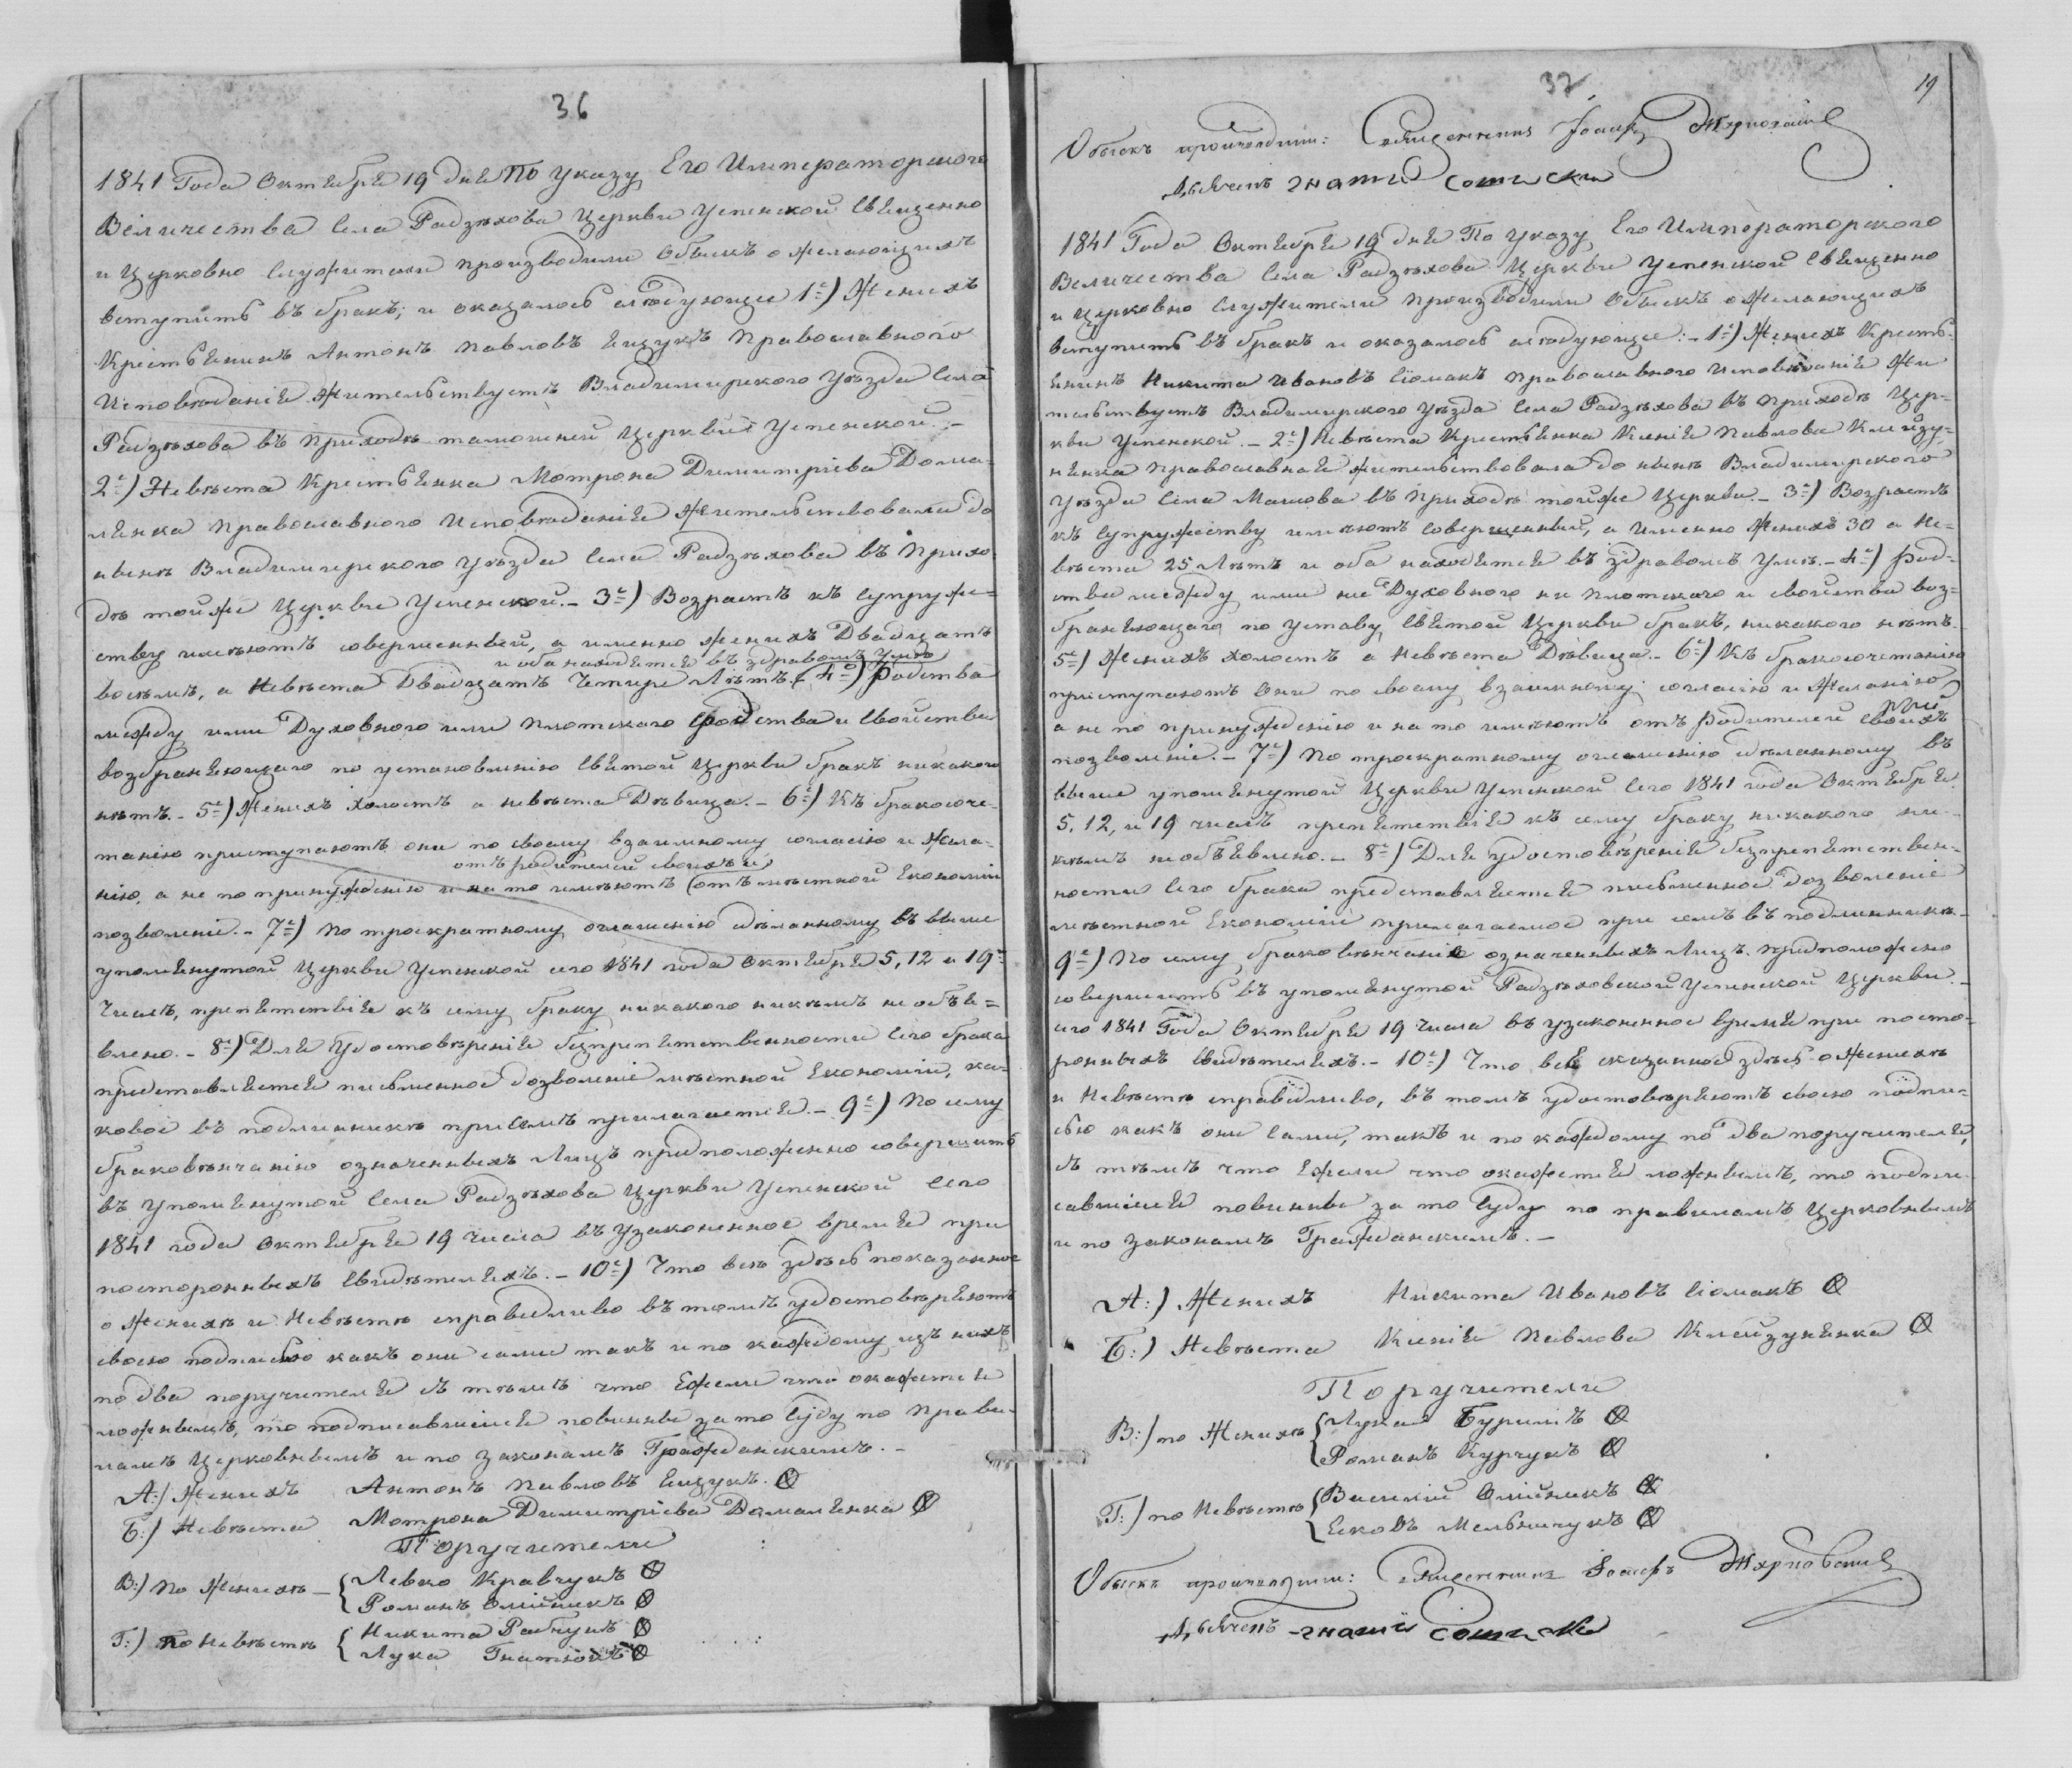 36
1841 Года Октября 19 дня По указу Его Императорскаго
Величества Села Радзѣхова Церкви Успенской Священно
и Церковно служители производили Обыскъ о желающихъ
вступить въ бракъ, и оказалось слѣдующее 1е) Женихъ
Крестьянинъ Антонъ Павловъ Ящукъ Православного
Исповѣданія Жительствуетъ Владимирского Уѣзда Села
Радзѣхова въ приходѣ тамошней Церкви Успенской. –
2е) Невѣста Крестьянка Мотрона Димитріева Дома-
лянка Православного Исповѣданія Жительствовали до
нынѣ Владимирского Уѣзда Села Радзѣхова въ Прихо
дѣ той же Церкви Успенской. – 3е) Возрастъ къ Супруже=
ству имѣютъ совершенный, а именно Женихъ Двадцать
и оба находятся въ здравомъ умѣ
восѣмъ, а Невѣста Двадцать Четире Лѣтъ. 4е) Родства
между ими Духовного или плотского Родства и Свойства
возбраняющаго по установленію Святой Церкви бракъ никакого
нѣтъ. – 5е) Женихъ холостъ а невѣста Дѣвица. – 6е) Къ бракосоче-
танію приступаютъ они по своему взаимному согласію и Жела-
отъ родителей своихъ и
нію, а не по принужденію и на то имѣютъ отъ мѣстной Економіи
позволеніе. – 7е) По троекратному оглашенію сдѣланному въ выше
упомянутой Церкви Успенской сего 1841 года Октября 5, 12 и 19
Числъ, препятствія къ сему браку никакого никѣмъ не объя=
влено. – 8е) Для Удостовѣренія безпрепятственности сего брака
представляется письменное дозволеніе мѣстной Економіи, ка-
ковое въ подлинникѣ при семъ прилагается. – 9е) По сему
браковѣнчанію означенныхъ Лицъ предположенно совершить
въ упомянутой Села Радзѣхова Церкви Успенской сего
1841 года Октября 19 числа въ узаконенное время при
посторонныхъ Свидѣтеляхъ. – 10е) Что всѣ здѣсь показанное
о Женихѣ и Невѣстѣ справедливо въ томъ удостовѣряютъ
своею подписью какъ они сами такъ и по каждому изъ нихъ
по два поручителя съ тѣмъ что Ежели что окажется
ложнымъ, то подписавшіися повинны за то Суду по Прави-
ламъ Церковнымъ и по законамъ Гражданскимъ. –
А:) Женихъ Антонъ Павловъ Ящукъ.
Б:) Невѣста Мотрона Димитріева Домалянка
Поручители
В:) По Женихѣ – Левко Кравчукъ
Романъ Олійникъ
Г:) По Невѣстѣ Никита Рабчукъ
Лука Гнатюкъ
37
19
Обыскъ производили: Священникъ Іоасифъ
Дьячекъ
1841 Года Октября 19 дня По Указу Его Императорского
Величества Села Радзѣхова Церкви Успенской Священно
и Церковно Служители производили Обыскъ о Желающихъ
вступить въ бракъ и оказалось слѣдующее: – 1е) Женихъ Кресть-
янинъ Никита Ивановъ Сіомакъ православного Исповѣданія Жи
тельствуетъ Владимирского Уѣзда Села Радзѣхова въ Приходѣ Цер-
кви Успенской. – 2е) Невѣста Крестьянка Ксенія Павлова Клейзу-
нянка православная жительствовала до нынѣ Владимирского
Уѣзда Села Машова въ приходѣ той же Церкви. – 3е) Возрастъ
къ Супружеству имѣютъ совершенный, а именно Женихъ 30 а Не-
вѣста 25 Лѣтъ и оба находятся въ здравомъ Умѣ. – 4е) Род-
ства между ими ни Духовного ни плотского и свойства воз=
браняющаго по уставу Святой Церкви бракъ, никакого нѣтъ.
5е) Женихъ холостъ а Невѣста Дѣвица. – 6е) Къ бракосочетанію
приступаютъ Они по своему взаимному согласію и Желанію
а не по принужденію и на то имѣютъ отъ Родителей своихъ
позволеніе. – 7е) По троекратному оглашенію сдѣланному въ
выше упомянутой Церкви Успенской Сего 1841 года Октября
5, 12, и 19 числъ препятствія къ сему браку никакого ни-
кѣмъ необъявлено. – 8е) Для Удостовѣренія безпрепятствен-
ности Сего брака представляется письменное Дозволеніе
мѣстной Економіи прилагаемое при семъ въ подлинникѣ. –
9е) По сему браковѣнчаніе означенныхъ Лицъ предположено
совершить въ упомянутой Радзѣховской Успенской Церкви. –
сего 1841 Года Октября 19 числа въ узаконенное время при посто-
ронныхъ Свидѣтеляхъ. – 10е) Что всё сказанное здѣсь о Женихѣ
и Невѣстѣ справедливо, въ томъ удостовѣряютъ своею подпи-
сью какъ они Сами, такъ и по каждому по два поручителя,
съ тѣмъ что Ежели что окажется ложнымъ, то подпи
савшіися повинны за то Суду по правиламъ Церковнымъ
и по законамъ Гражданскимъ. –
А:) Женихъ Никита Ивановъ Сіомакъ
Б:) Невѣста Ксенія Павлова Клейзунянка
Поручители
В:) по Женихѣ Лукаш Бурикъ
Романъ Курчукъ
Г:) по Невѣстѣ Василій Олійникъ
Яковъ Мельничукъ
Обыскъ производили: Священникъ Іоасифъ
Дьячекъ